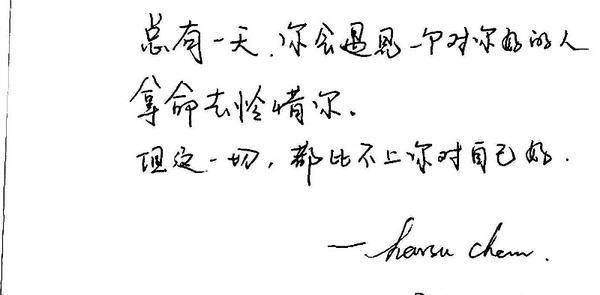 总有一天、你会遇见一个对你好的人
拿命去怜惜你。
但这一切，都比不上你对自己好.